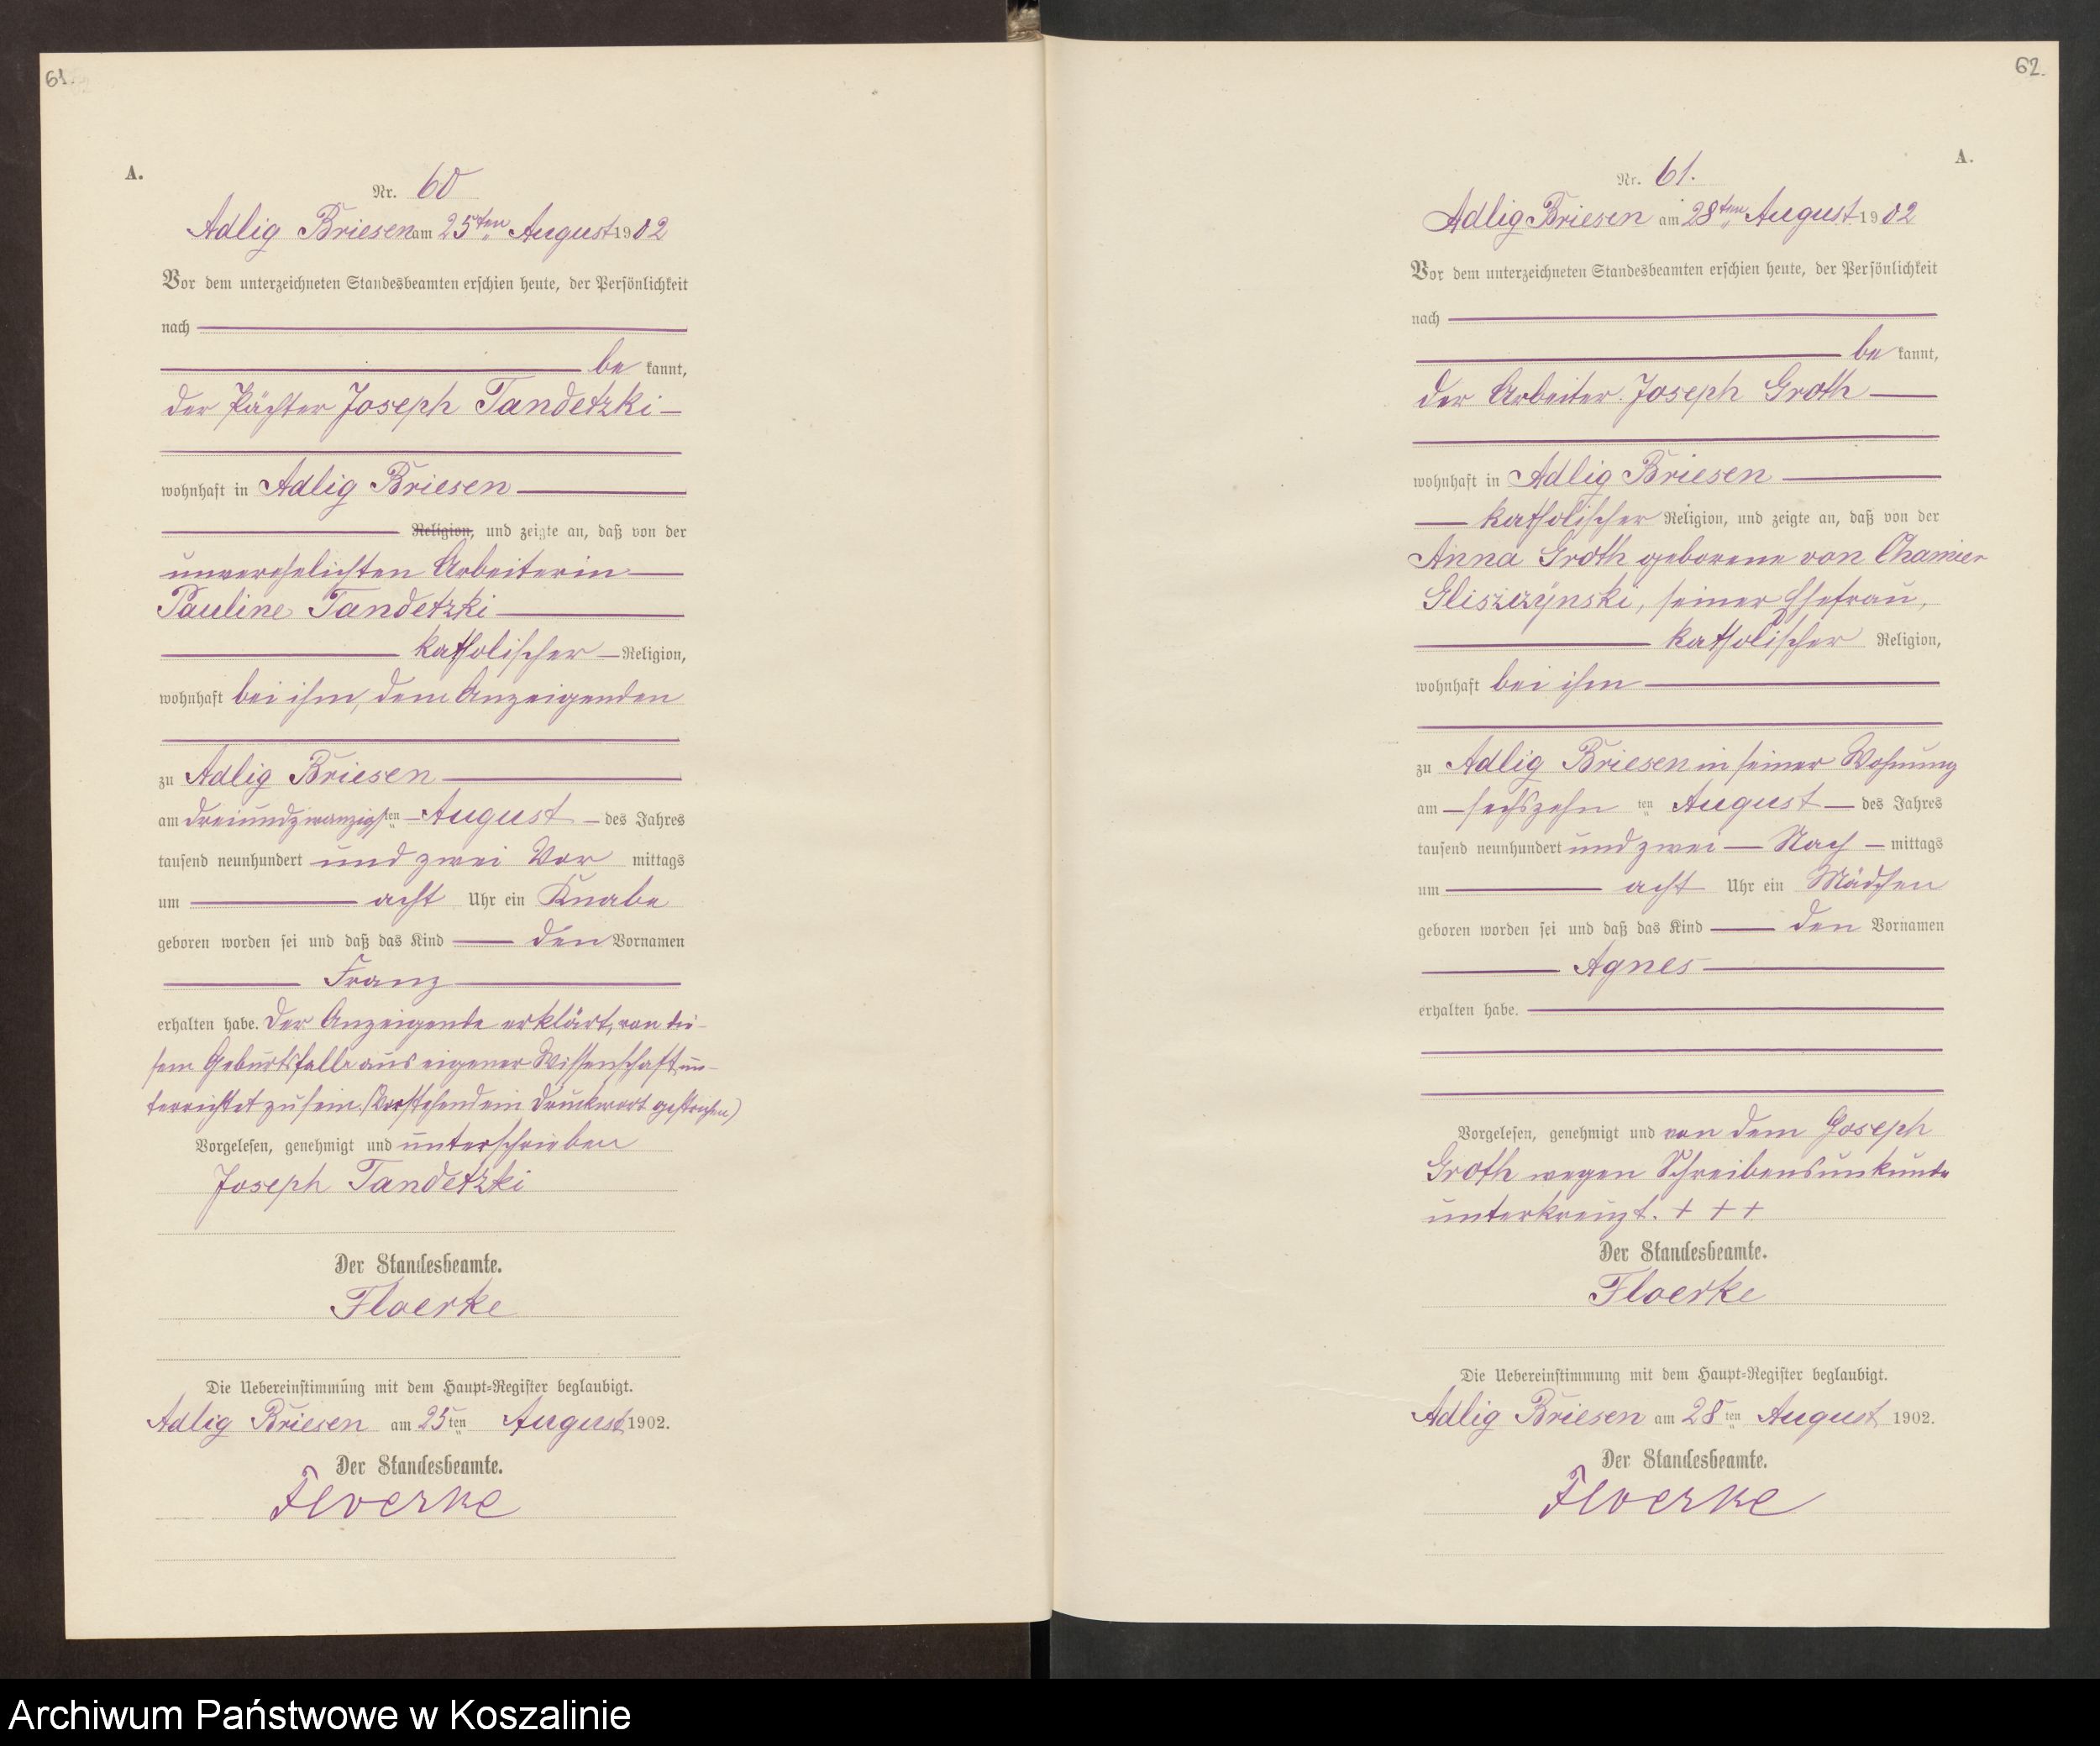 61.
A.
Nr. 60
Adlig Briesen am 25ten August 1902
Vor dem unterzeichneten Standesbeamten erschien heute, der Persönlichkeit
nach
be kannt,
der Pächter Joseph Tandetzki
wohnhaft in Adlig Briesen
Religion, und zeigte an, daß von der
unverehelichten Arbeiterin
Pauline Tandetzki
katholischer Religion,
wohnhaft bei ihm, dem Anzeigenden
zu Adlig Briesen
am dreiundzwanzigsten August des Jahres
tausend neunhundert und zwei Vor mittags
um acht Uhr ein Knabe
geboren worden sei und daß das Kind den Vornamen
Franz
erhalten habe. Der Anzeigende erklärt, von die-
sem Geburtsfalle aus eigener Wissenschaft un-
terrichtet zu sein. (Vorstehend ein Druckwort gestrichen)
Vorgelesen, genehmigt und unterschrieben
Joseph Tandetzki
Der Standesbeamte.
Floerke
Die Uebereinstimmung mit dem Haupt-Register beglaubigt.
Adlig Briesen am 25ten August 1902.
Der Standesbeamte.
Floerke
62.
A.
Nr. 61.
Adlig Briesen am 28ten August 1902
Vor dem unterzeichneten Standesbeamten erschien heute, der Persönlichkeit
nach
be kannt,
der Arbeiter Joseph Groth
wohnhaft in Adlig Briesen
katholischer Religion, und zeigte an, daß von der
Anna Groth geborene von Chamier
Gliszczynski, seiner Ehefrau,
katholischer Religion,
wohnhaft bei ihm
zu Adlig Briesen in seiner Wohnung
am sechszehn ten August des Jahres
tausend neunhundert und zwei Nach mittags
um acht Uhr ein Mädchen
geboren worden sei und daß das Kind den Vornamen
Agnes
erhalten habe.
Vorgelesen, genehmigt und von dem Joseph
Groth wegen Schreibensunkunde
unterkreuzt. + + +
Der Standesbeamte.
Floerke
Die Uebereinstimmung mit dem Haupt-Register beglaubigt.
Adlig Briesen am 28ten August 1902.
Der Standesbeamte.
Floerke
Archiwum Państwowe w Koszalinie